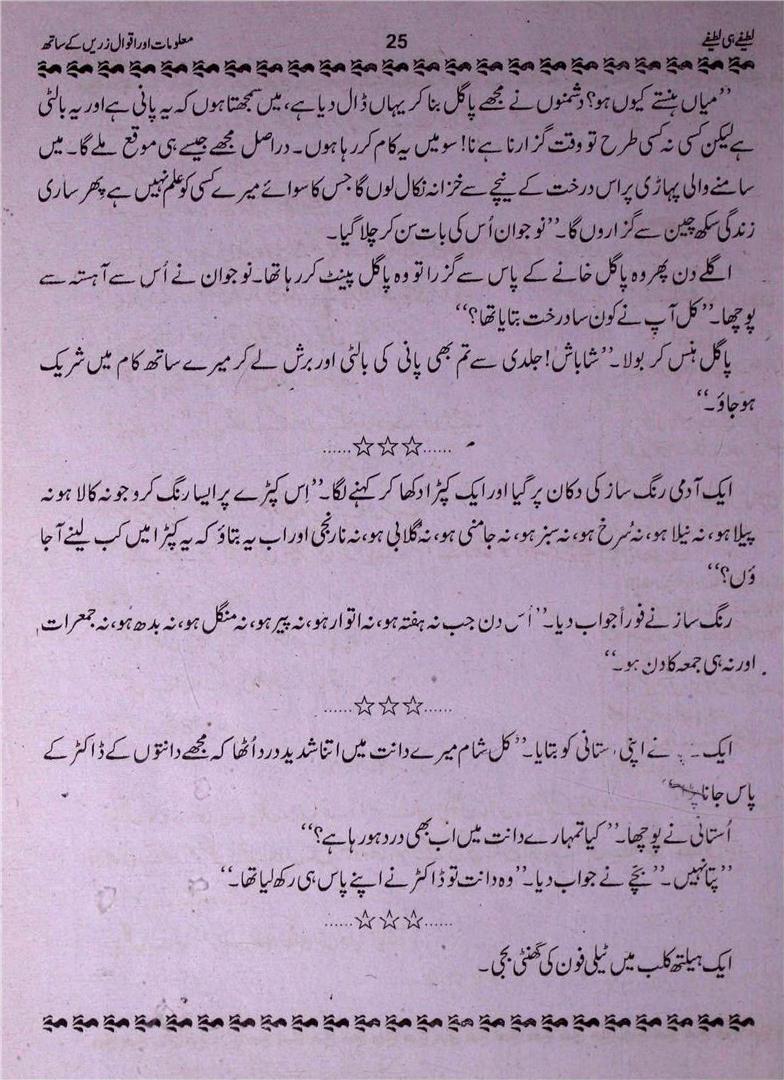 لطیفے ہی لطیفے 25 معلومات اور اقوال زریں کے ساتھ
’’میاں ہنستے کیوں ہو؟ دشمنوں نے مجھے پاگل بنا کر یہاں ڈال دیا ہے، میں سمجھتا ہوں کہ یہ پانی ہے اور یہ بالٹی
ہے لیکن کسی نہ کسی طرح تو وقت گزارنا ہے نا! سو میں یہ کام کر رہا ہوں۔ دراصل مجھے جیسے ہی موقع ملے گا۔ میں
سامنے والی پہاڑی پر اس درخت کے نیچے سے خزانہ نکال لوں گا جس کا سوائے میرے کسی کو علم نہیں ہے پھر ساری
زندگی سکھ چین سے گزاروں گا۔‘‘ نوجوان اُس کی بات سن کر چلا گیا۔
اگلے دن پھر وہ پاگل خانے کے پاس سے گزرا تو وہ پاگل پینٹ کر رہا تھا۔ نوجوان نے اُس سے آہستہ سے
پوچھا۔ ’’کل آپ نے کون سا درخت بتایا تھا؟‘‘
پاگل ہنس کر بولا۔ ’’شاباش! جلدی سے تم بھی پانی کی بالٹی اور برش لے کر میرے ساتھ کام میں شریک
ہو جاؤ۔‘‘
......☆☆☆......
ایک آدمی رنگ ساز کی دکان پر گیا اور ایک کپڑا دکھا کر کہنے لگا۔ ’’اِس کپڑے پر ایسا رنگ کرو جو نہ کالا ہو نہ
پیلا ہو، نہ نیلا ہو، نہ سُرخ ہو، نہ سبز ہو، نہ جامنی ہو، نہ گلابی ہو، نہ نارنجی اور اب یہ بتاؤ کہ یہ کپڑا میں کب لینے آ جا
ؤں؟‘‘
رنگ ساز نے فوراً جواب دیا۔ ’’اُس دن جب نہ ہفتہ ہو، نہ اتوار ہو، نہ پیر ہو، نہ منگل ہو، نہ بدھ ہو، نہ جمعرات
اور نہ ہی جمعہ کا دن ہو۔‘‘
......☆☆☆......
ایک نے اپنی ستانی کو بتایا۔ ’’کل شام میرے دانت میں اتنا شدید درد اُٹھا کہ مجھے دانتوں کے ڈاکٹر کے
پاس جانا
اُستانی نے پوچھا۔ ’’کیا تمہارے دانت میں اب بھی درد ہو رہا ہے؟‘‘
’’پتا نہیں۔‘‘ بچے نے جواب دیا۔ ’’وہ دانت تو ڈاکٹر نے اپنے پاس ہی رکھ لیا تھا۔‘‘
......☆☆☆......
ایک ہیلتھ کلب میں ٹیلی فون کی گھنٹی بجی۔